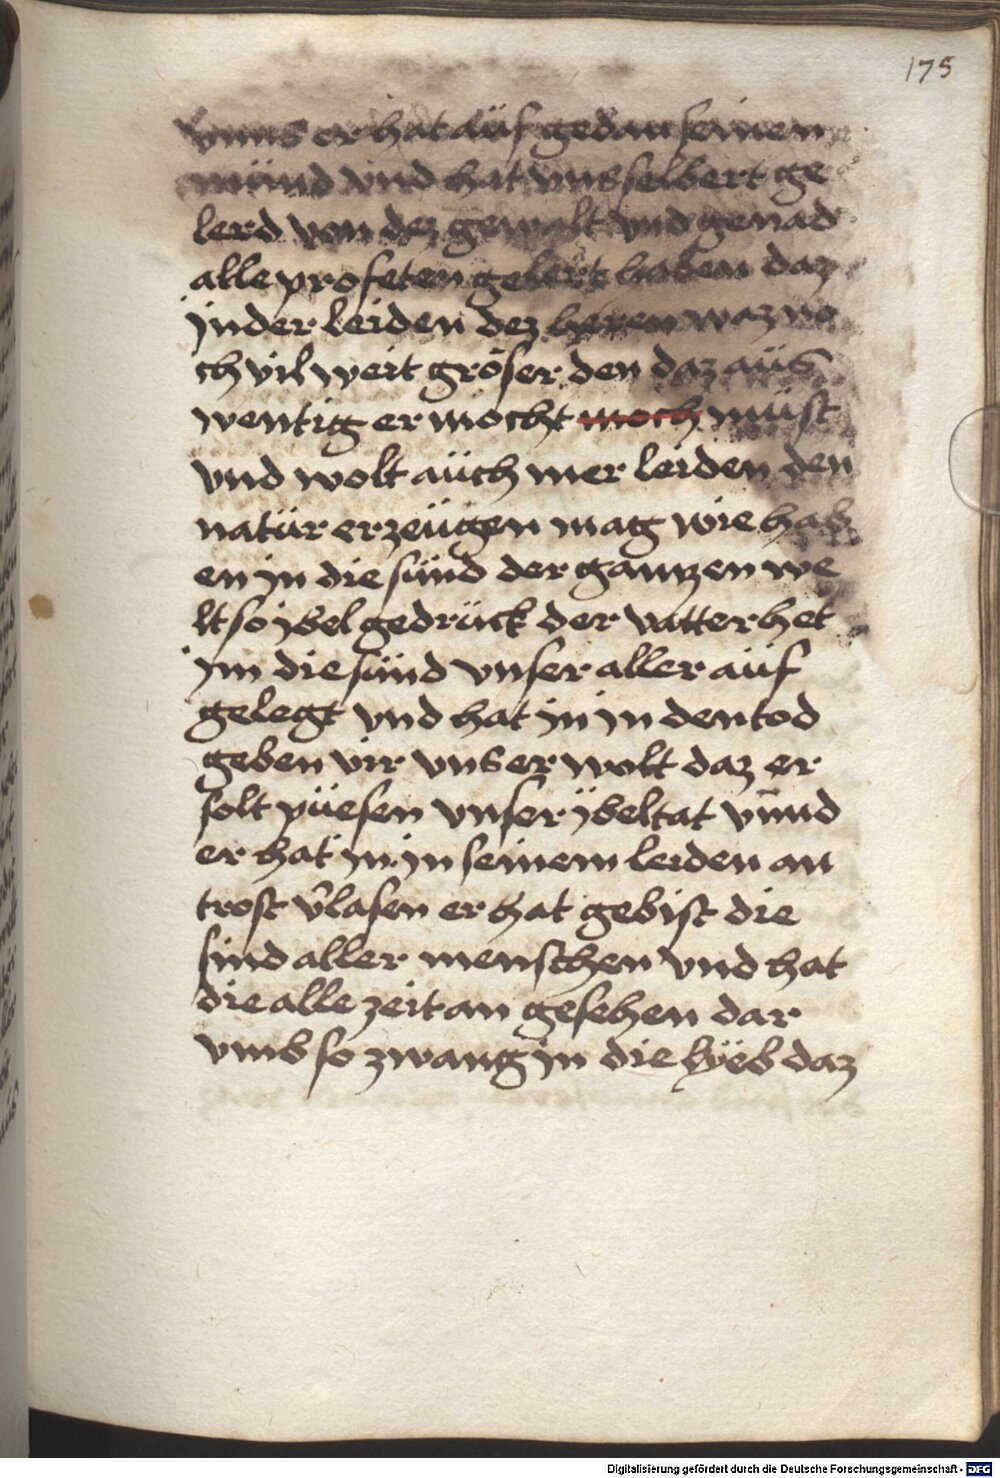 175
vnns er hat aüf gedan seinen
münd vnd hat vns selbert ge
lerd von dez gewalt vnd genad
alle profeten gelert haben daz
jnder leiden dez heren waz no
ch vil weit gröser den daz aüs
wentig er mocht moch müst
vnd wolt aüch mer leiden den
natür erzeügen mag wie hab
en jn die sünd der gantzen we
lt so jbel gedrück der vatter het
jm die sünd vnser aller aüf
gelegt vnd hat jn jn den tod
geben vir vns er wolt daz er
solt püesen vnser jbeltat vn̄nd
er hat jn jn seinem leiden an
trost v̉lasen er hat gebist die
sind aller menschen vnd hat
die alle zeit an gesehen dar
vmb so zwang jn die lÿeb daz
Digitalisierung gefördert durch die Deutsche Forschungsgemeinschaft - DFG